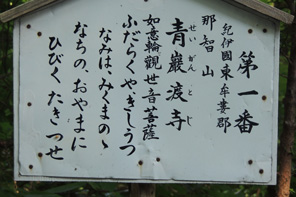 第一番
紀伊國東牟婁郡
那智山
青巖渡寺
せいがんとじ
如意輪觀世音菩薩
ふだらくやきしうつ
なみは、みくまのゝ
なちの、おやまに
ひびく、たきつせ